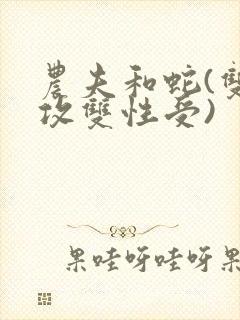 農夫和蛇(雙
攻雙性受)
果哇呀哇呀果